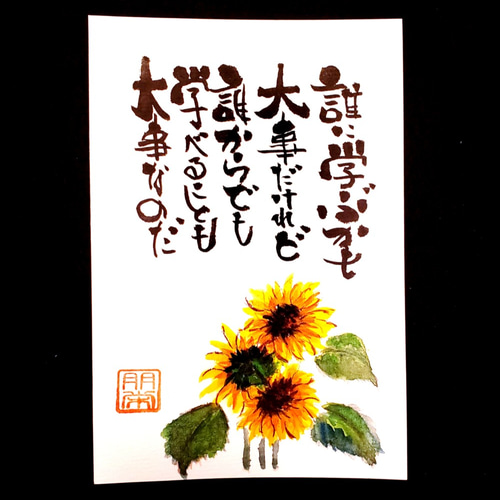 誰に学ぶかも
大事だけれど
誰からでも
学べることも
大事なのだ